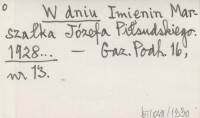 W dniu Imienin Mar-
szałka Józefa Piłsudskiego.
1928... — Gaz. Podh. 16,
nr 13.